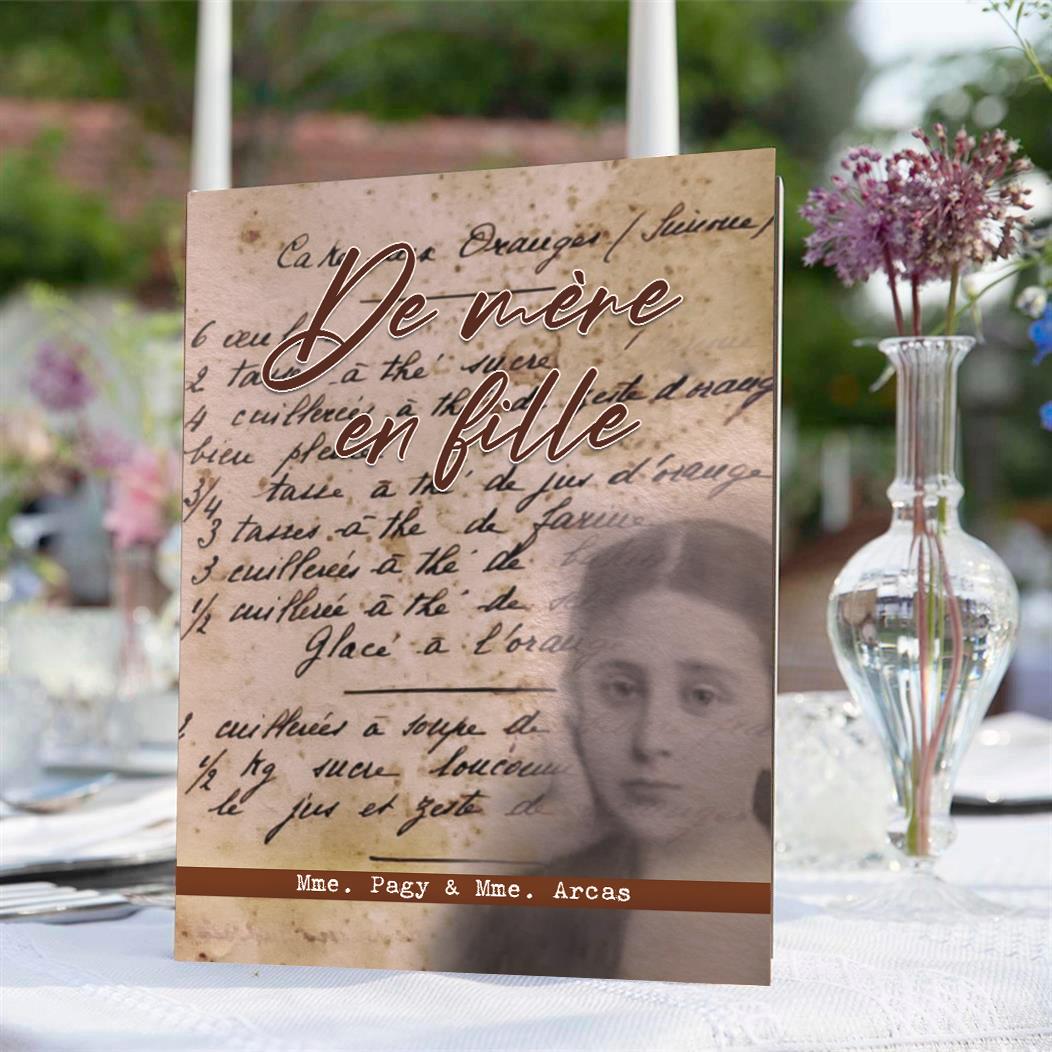 Cake aux Oranges (Simone)
De mère
6 œufs
2 tasses à thé sucre
4 cuillerées à thé de zeste d'orange
en fille
bien pleines
3/4 tasse à thé de jus d'orange
3 tasses à thé de farine
3 cuillerées à thé de
1/2 cuillerée à thé de
Glacé à l'orange
2 cuillerées à soupe de
1/2 Kg sucre
le jus et zeste de
Mme. Pagy & Mme. Arcas